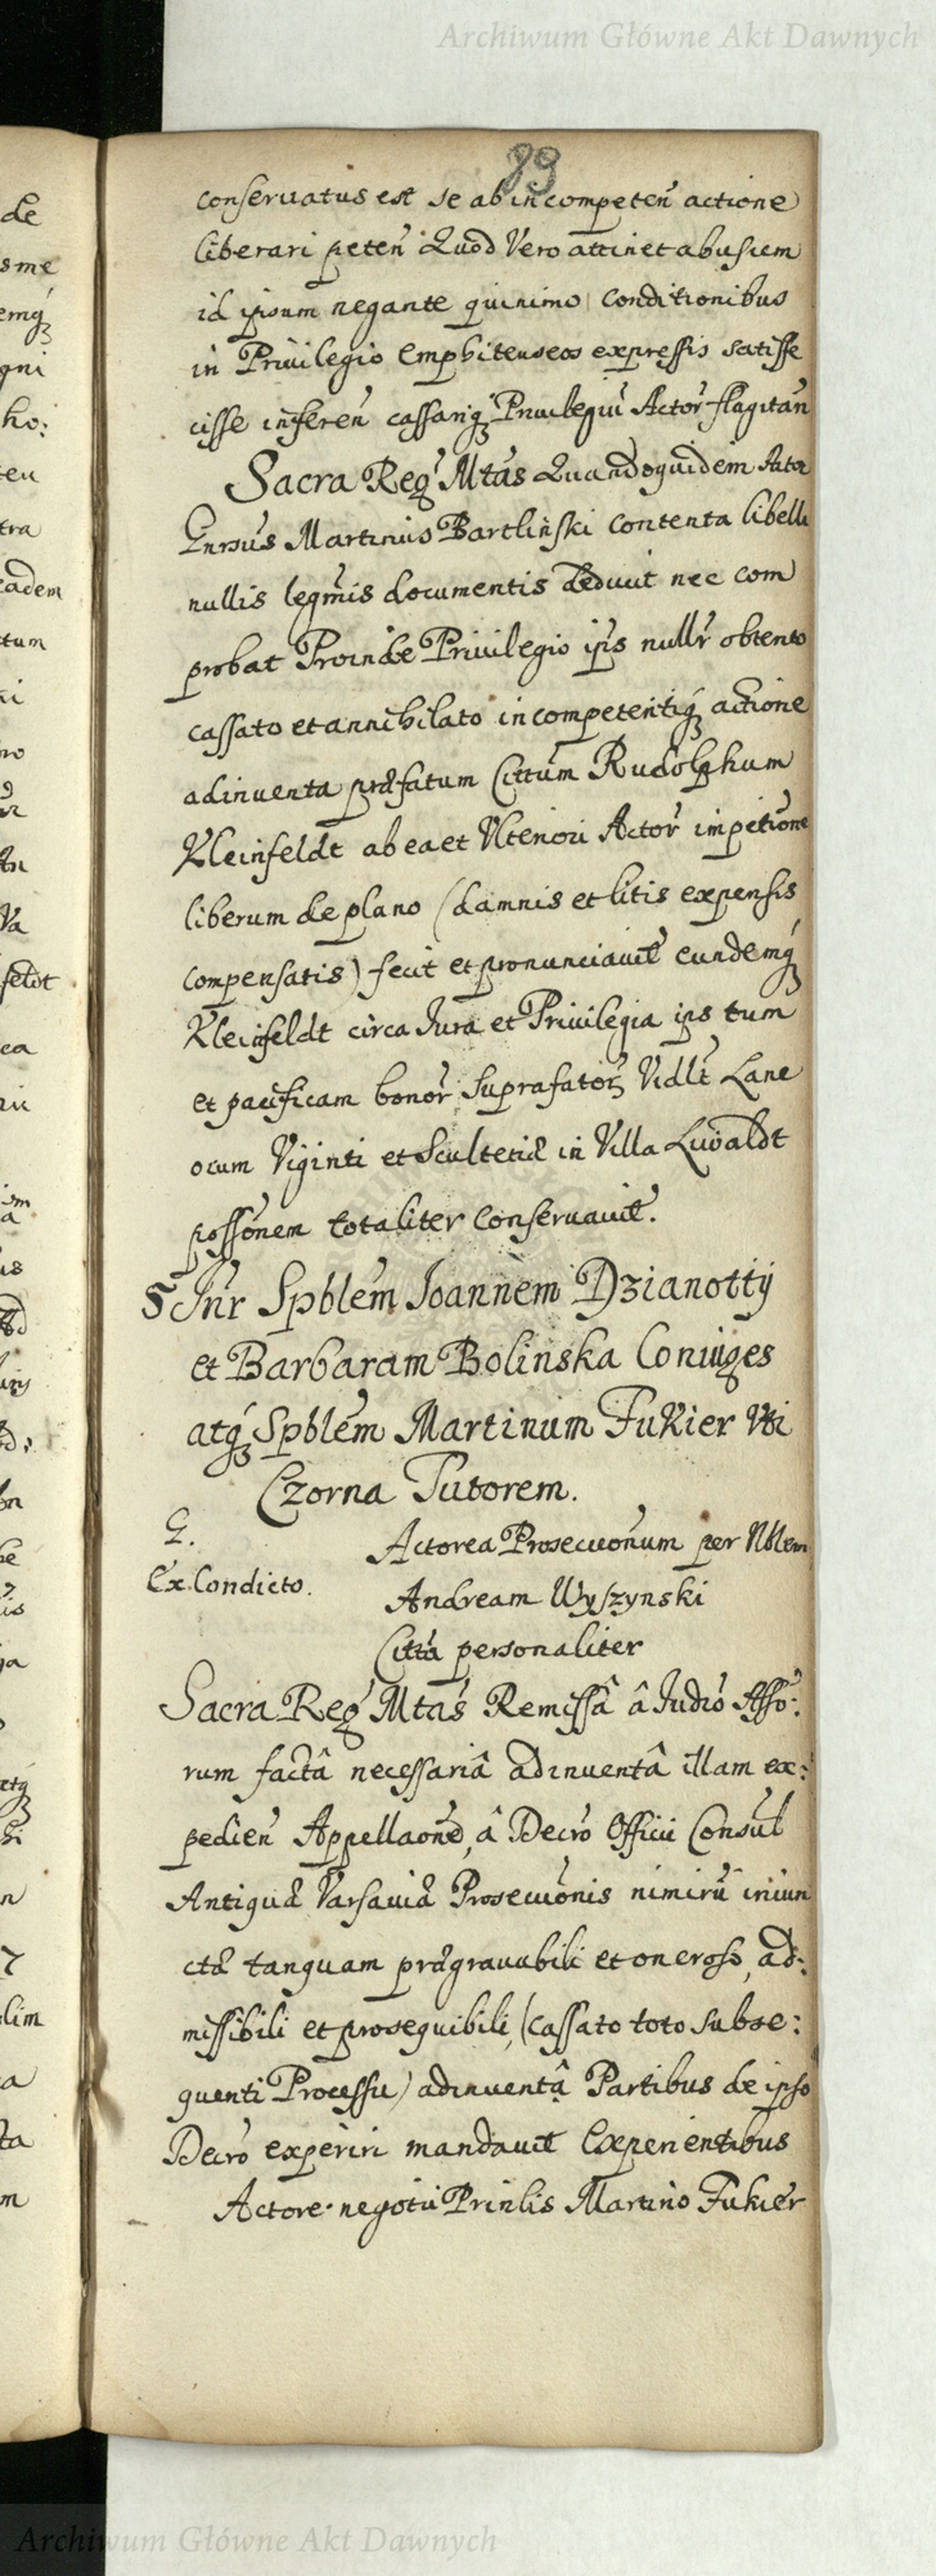 Archiwum Główne Akt Dawnych
89
conseruatus est se ab incompeten̄ actione
liberari peten̄ Quod Vero attinet abusum
id ipsum negante quinimo Conditionibus
in Priuilegio Emphiteuseos expressis satisfe
cisse inferen̄ cassariq́ Priuilegiū Actor̄ flagitan̄
Sacra Reǵ Mtás Quandoquidem Actor
Gnrsús Martinus Bartlinski contenta libelli
nullis legm̄is documentis deduxit nec com
probat Proinde Priuilegio ip̄s nullr̄ obtento
cassato et annihilato incompetentiq́ actione
adinuenta præfatum Cittūm Rudolphum
Kleinfeldt ab ea et Vlteriori Actor̄ impetione
liberum de plano (damnis et litis expensis
compensatis) fecit et pronunciauit eundemq́
Kleinfeldt circa Iura et Priuilegia ip̄s tum
et pacificam bonor̄ suprafator̄ Vidlt̄ Lane
orum Viginti et Scultetiæ in Villa Lubaldt
possōnem totaliter conseruauit.
5 Int̄r Spblēm Ioannem Dzianotty
et Barbaram Bolinska Coniuges
atq́ Spblēm Martinum Fukier Vti
Czorna Tutorem.
G.
Ex Condicto.
Actorea Prosecuōnum per Nblem
Andream Wyszynski
Citta personaliter
Sacra Reǵ Mtás Remissâ â Iudió Asso:
rum factâ necessariâ adinuentâ illam ex:
pedien̄ Appellaōne, â Decró Officii Consul̄
Antiquæ Varsauiæ Prosecuōnis nimirū iniun
ctæ tanquam prægrauabili et oneroso, ad:
missibili et prosequibili, (cassato toto subse:
quenti Processu) adinuentâ Partibus de ipso
Decró experiri mandauit Experientibus
Actore negotii Prinlis Martino Fukier
de
sme
emq́
gni
ho:
teu
tra
eadem
ctum
feldt
ea
lim
ta
Archiwum Główne Akt Dawnych